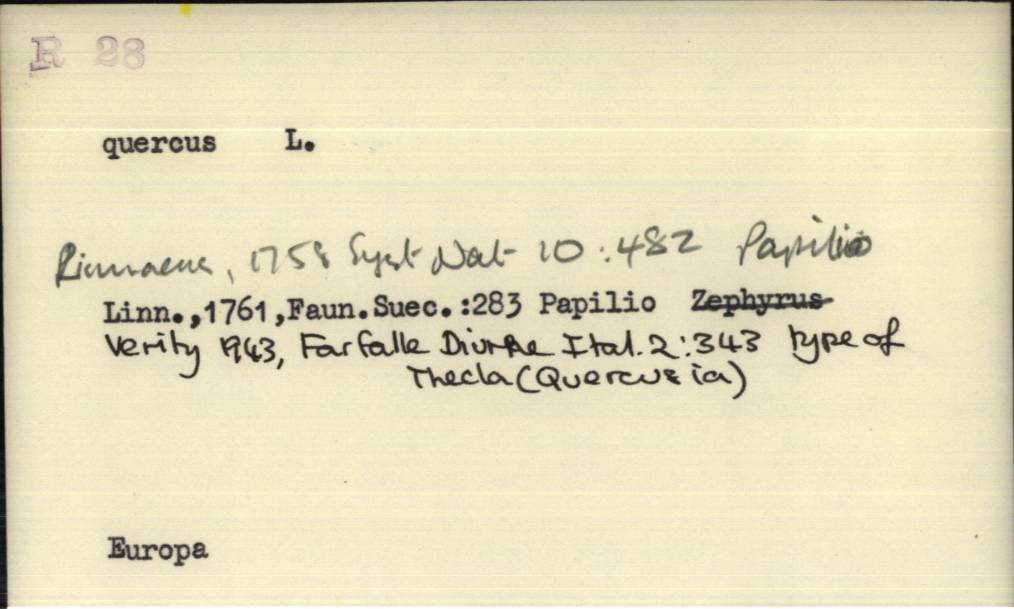 R 28
quercus L.
Linnaeus, 1758 Syst Nat 10 :482 Papilio
Linn.,1761,Faun.Suec.:283 Papilio Zephyrus
Verity 1943, Farfalle Diurne Ital. 2:343 type of
Thecla (Quercusia)
Europa